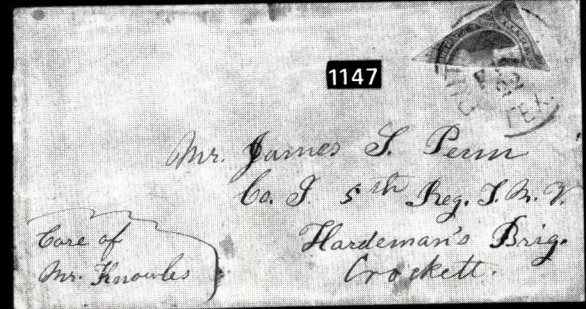 1147
TEX.
Mr. James S. Penn
Co. I 5th Reg. T. M. V.
Hardeman's Brig.
Crockett.
Care of
Mr. Knowles